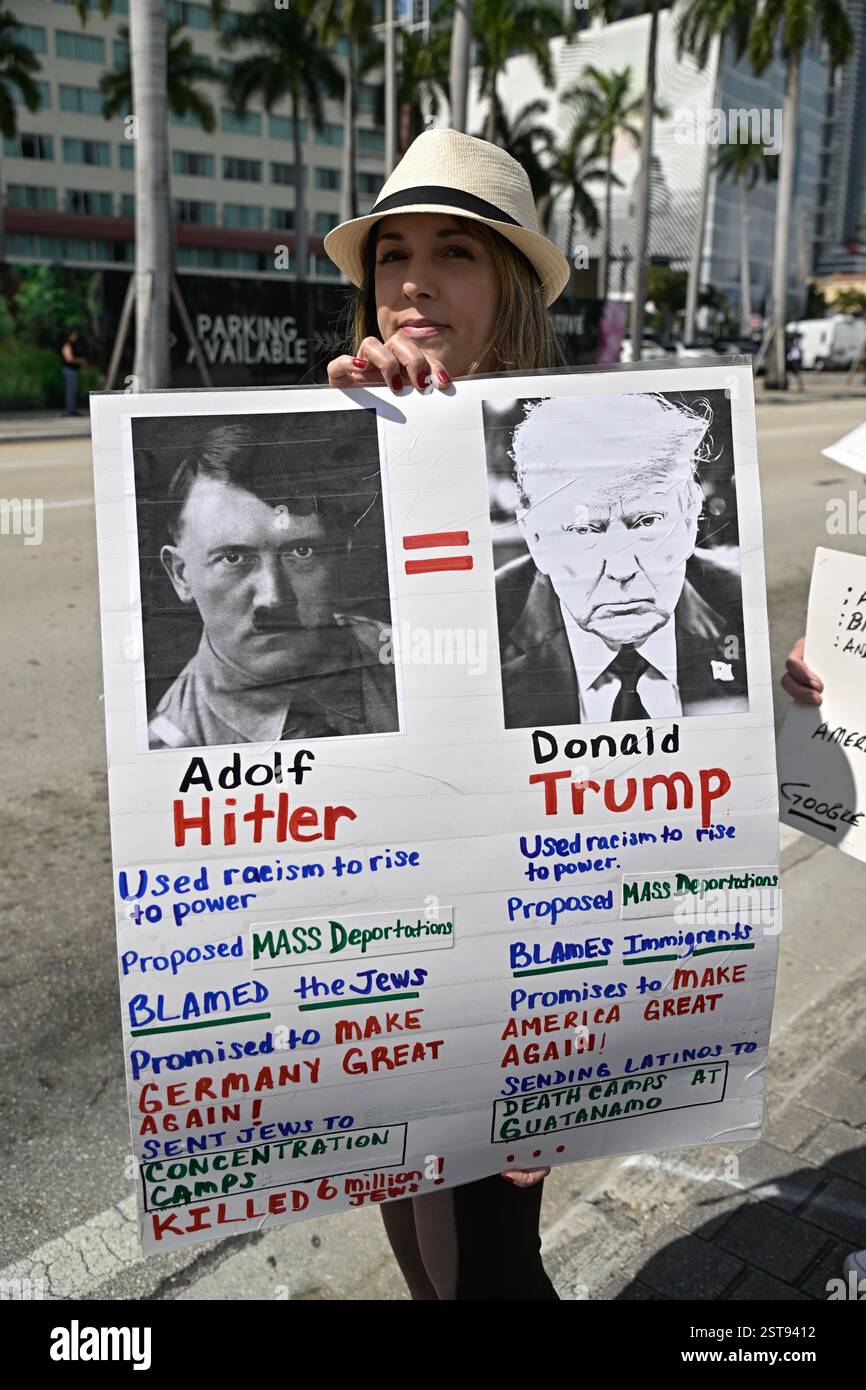 PARKING
AVAILABLE
=
Adolf
Hitler
Used racism to rise
to power
Proposed MASS Deportations
BLAMED the Jews
Promised to MAKE
GERMANY GREAT
AGAIN!
SENT JEWS TO
CONCENTRATION
CAMPS
KILLED 6 million JEWS!
Donald
Trump
Used racism to rise
to power.
Proposed MASS Deportations
BLAMES Immigrants
Promises to MAKE
AMERICA GREAT
AGAIN!
SENDING LATINOS TO
DEATH CAMPS AT
GUATANAMO
...
GOOGLE
a
alamy
Image ID: 2ST9412
www.alamy.com